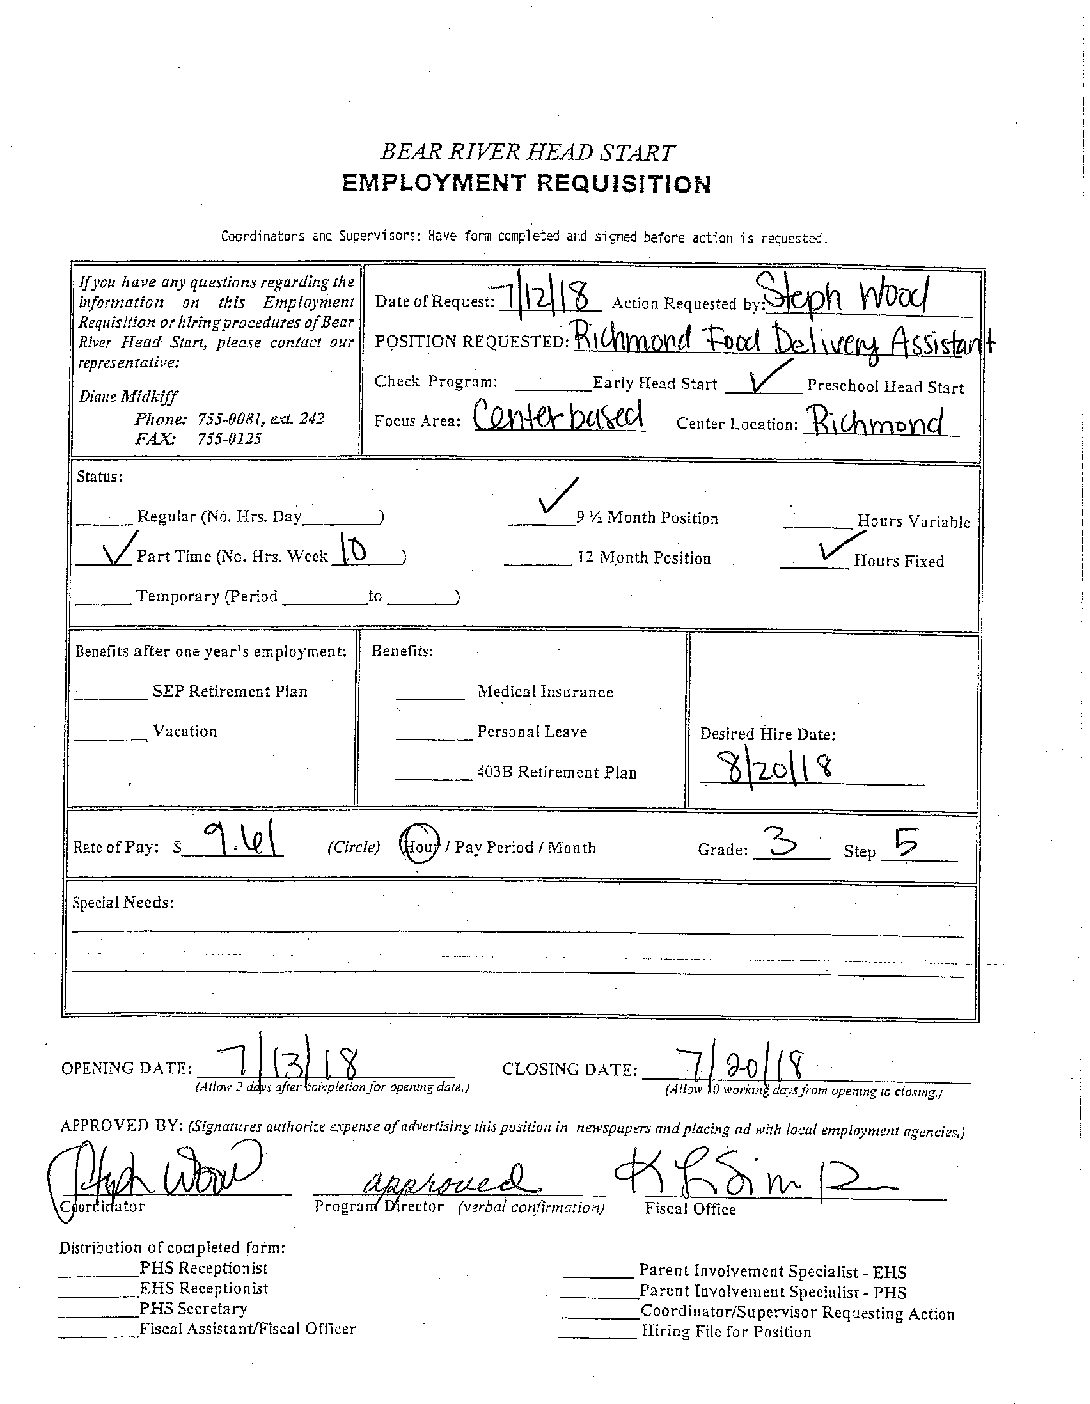 BEAR RIVER HEAD START
EMPLOYMENT REQUISITION
Coordinators and Supervisors: Have form completed and signed before action is requested.
If you have any questions regarding the
information on this Employment
Requisition or hiring procedures of Bear
River Head Start, please contact our
representative:
Diane Midkiff
Phone: 755-0081, ext. 242
FAX: 755-0125
Date of Request: 7/12/18 Action Requested by: Steph Wood
POSITION REQUESTED: Richmond Food Delivery Assistant
Check Program: ______ Early Head Start __✓__ Preschool Head Start
Focus Area: Center based Center Location: Richmond
Status:
______ Regular (No. Hrs. Day______) __✓__ 9 ½ Month Position ______ Hours Variable
__✓__ Part Time (No. Hrs. Week 10 ) ______ 12 Month Position __✓__ Hours Fixed
______ Temporary (Period ______ to ______)
Benefits after one year's employment:
______ SEP Retirement Plan
______ Vacation
Benefits:
______ Medical Insurance
______ Personal Leave
______ 403B Retirement Plan
Desired Hire Date:
8/20/18
Rate of Pay: $ 9.61 (Circle) Hour / Pay Period / Month Grade: 3 Step 5
Special Needs:
OPENING DATE: 7/13/18 CLOSING DATE: 7/20/18
(Allow 2 days after completion for opening date.) (Allow 10 working days from opening to closing.)
APPROVED BY: (Signatures authorize expense of advertising this position in newspapers and placing ad with local employment agencies.)
Steph Wood approved
Coordinator Program Director (verbal confirmation) Fiscal Office
Distribution of completed form:
______ PHS Receptionist
______ EHS Receptionist
______ PHS Secretary
______ Fiscal Assistant/Fiscal Officer
______ Parent Involvement Specialist - EHS
______ Parent Involvement Specialist - PHS
______ Coordinator/Supervisor Requesting Action
______ Hiring File for Position